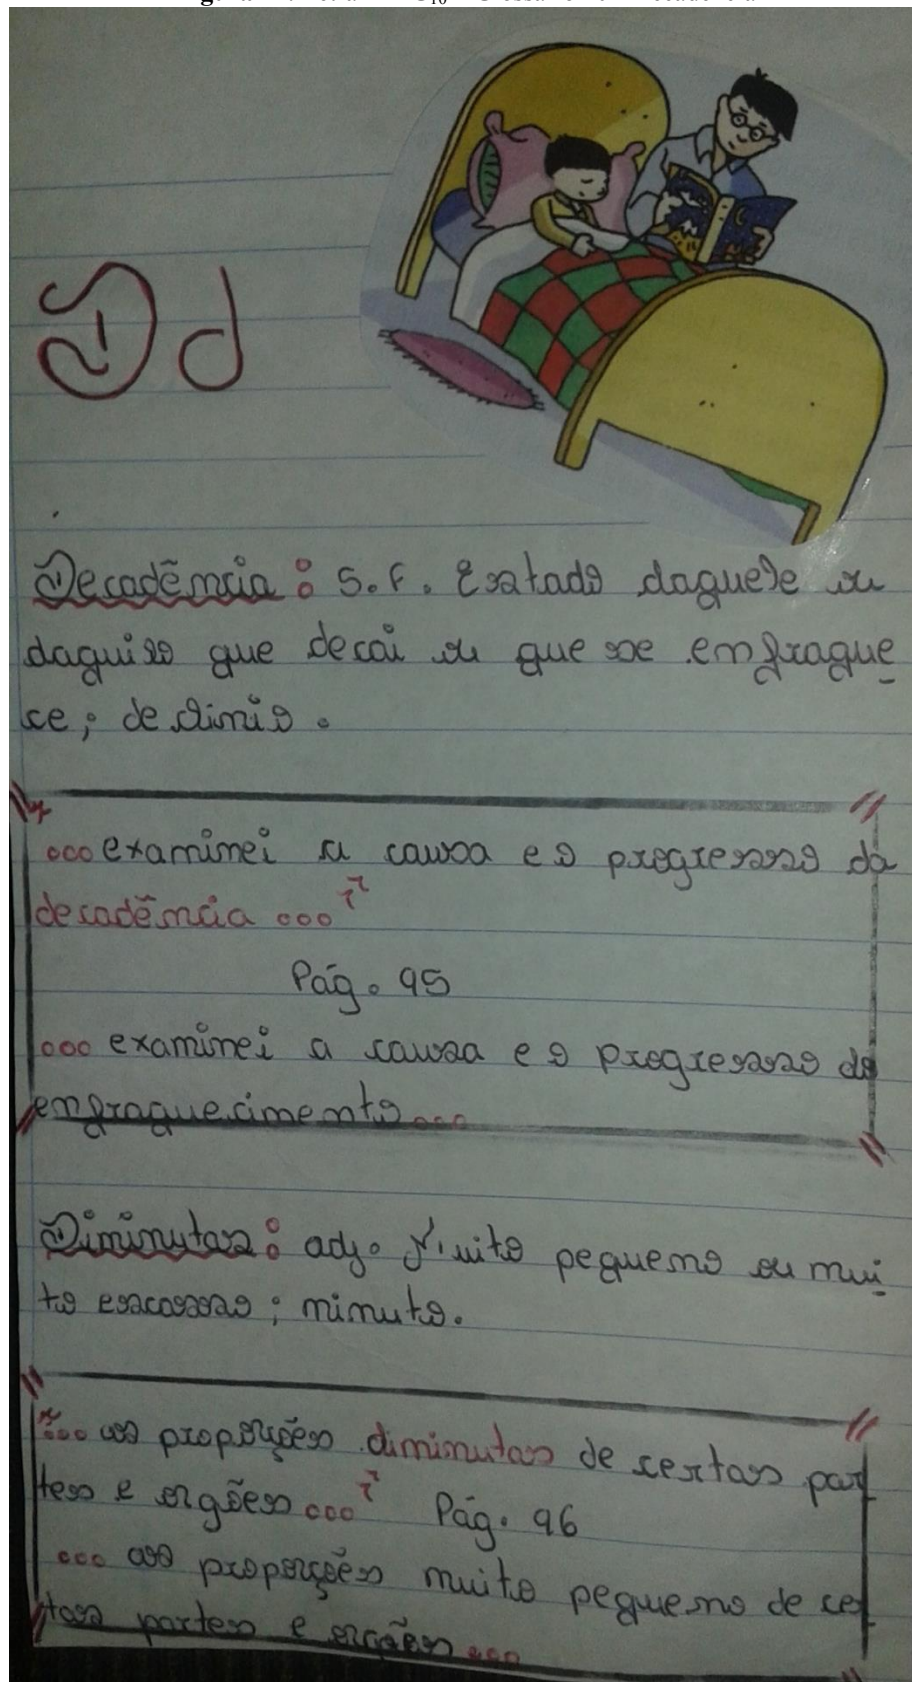 D d
Decadência: S.F. Estado daquele ou
daquilo que decai ou que se enfraque
ce; declínio.
"...examinei a causa e o progresso da
decadência..."
Pág. 95
...examinei a causa e o progresso do
enfraquecimento...
Diminutas: adj. Muito pequeno ou mui
to escasso; minuto.
"... as proporções diminutas de certas par
tes e orgões..." Pág. 96
... as proporções muito pequeno de cer
tas partes e orgões...